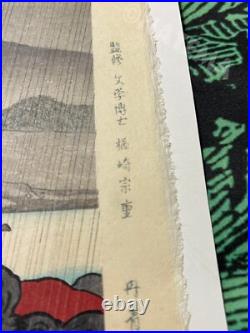 監修 文学博士 楢崎宗重
丹